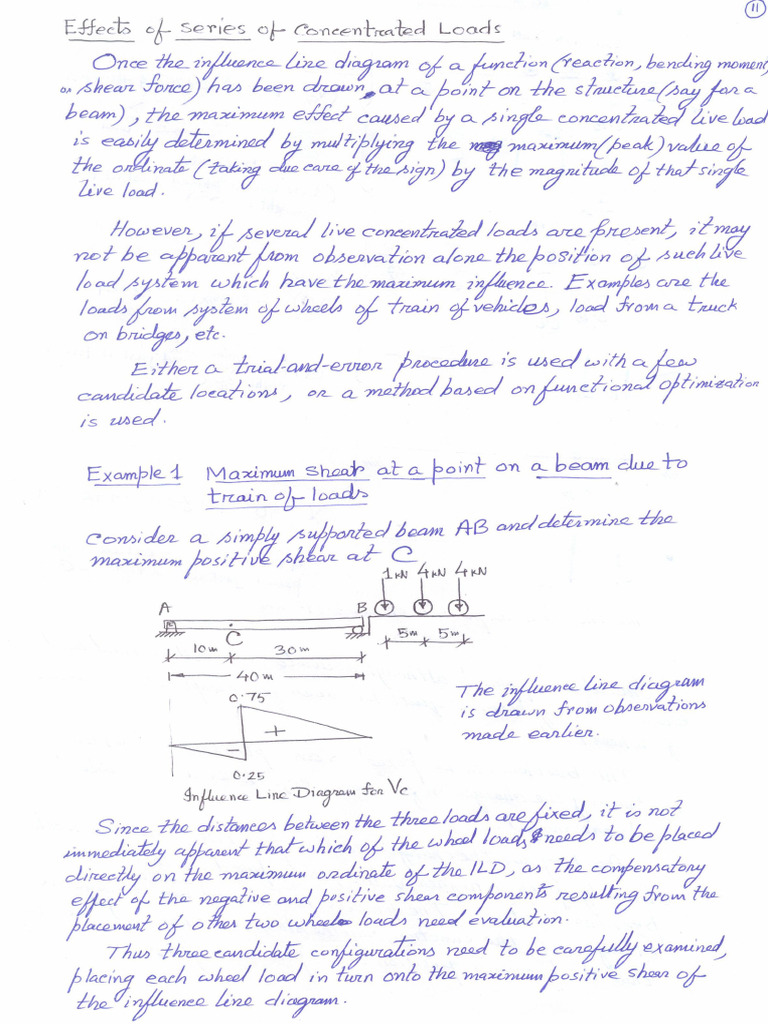 11
Effects of Series of Concentrated Loads
Once the influence line diagram of a function (reaction, bending moment,
or shear force) has been drawn, at a point on the structure (say for a
beam), the maximum effect caused by a single concentrated live load
is easily determined by multiplying the maximum (peak) value of
the ordinate (taking due care of the sign) by the magnitude of that single
live load.
However, if several live concentrated loads are present, it may
not be apparent from observation alone the position of such live
load system which have the maximum influence. Examples are the
loads from system of wheels of train of vehicles, load from a truck
on bridges, etc.
Either a trial-and-error procedure is used with a few
candidate locations, or a method based on functional optimization
is used.
Example 1 Maximum Shear at a point on a beam due to
train of loads
Consider a simply supported beam AB and determine the
maximum positive shear at C
1 kN 4 kN 4 kN
A B
C
5m 5m
10m 30m
40m
0.75
The influence line diagram
is drawn from observations
made earlier.
+
−
0.25
Influence Line Diagram for Vc
Since the distances between the three loads are fixed, it is not
immediately apparent that which of the wheel loads needs to be placed
directly on the maximum ordinate of the ILD, as the compensatory
effect of the negative and positive shear components resulting from the
placement of other two wheel loads need evaluation.
Thus three candidate configurations need to be carefully examined,
placing each wheel load in turn onto the maximum positive shear of
the influence line diagram.